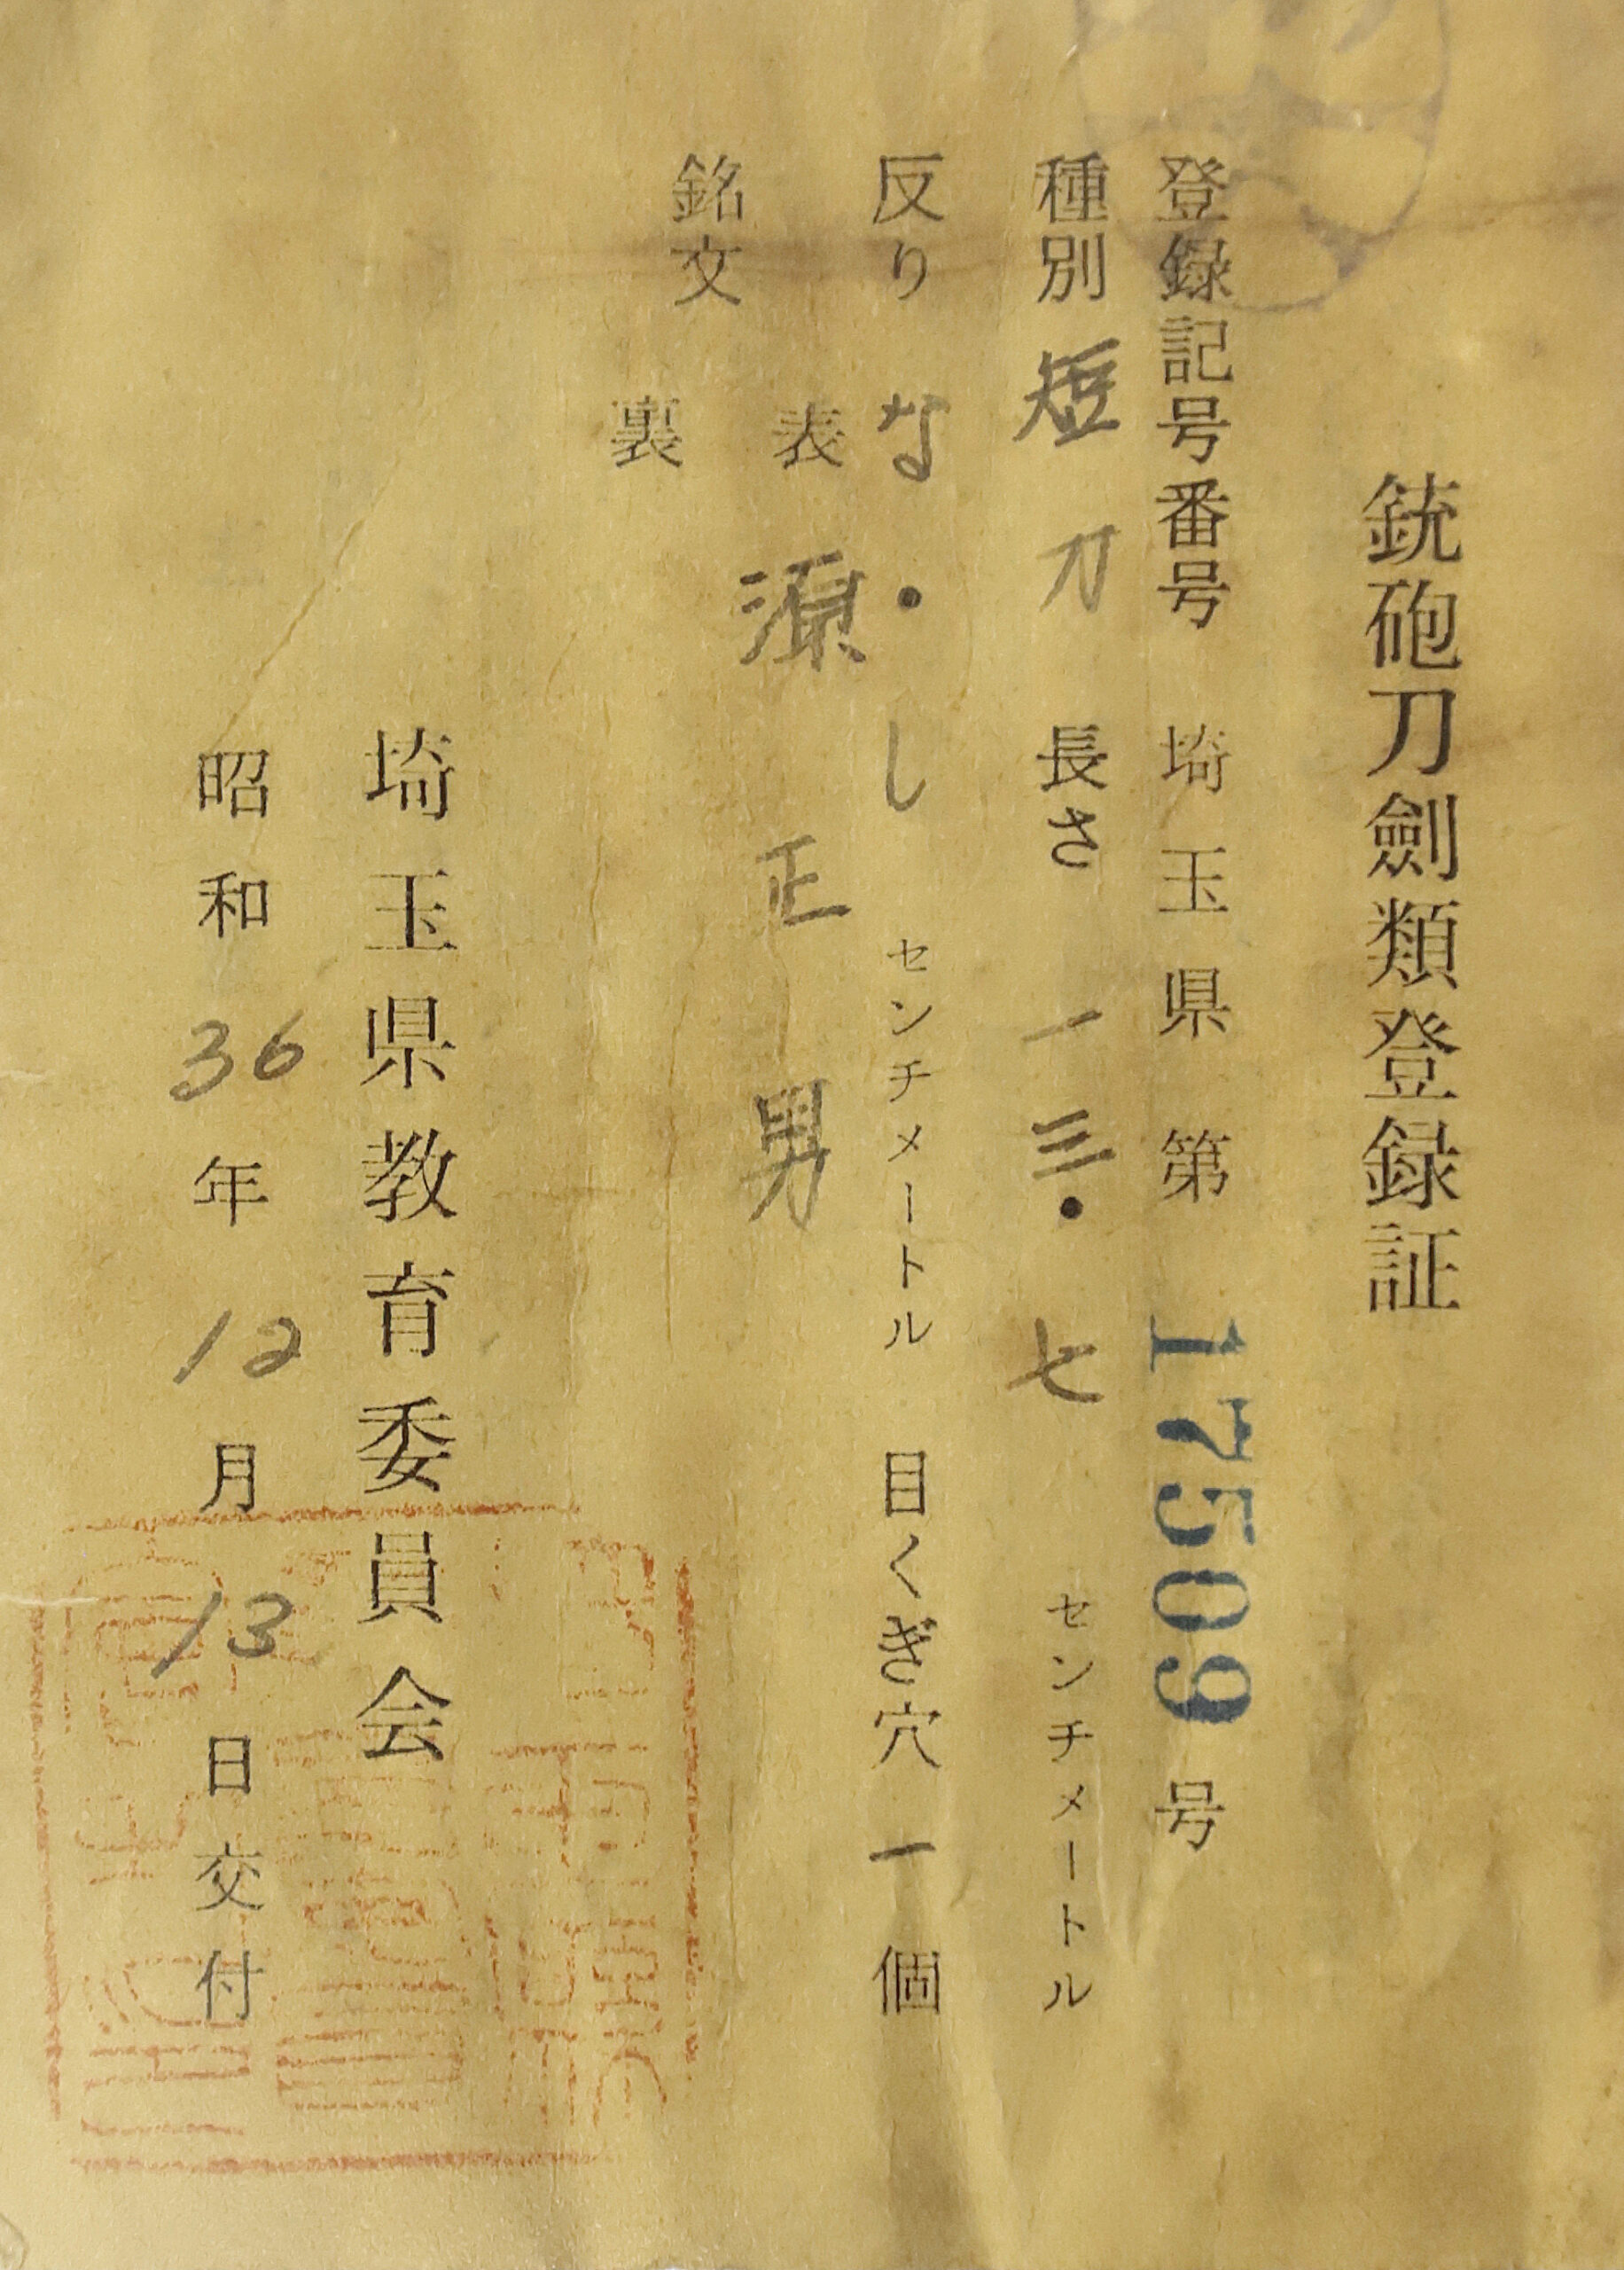 銃砲刀劍類登録証
登録記号番号 埼玉県 第 17509 号
種別 短刀 長さ 一三・七 センチメートル
反り な・し センチメートル 目くぎ穴 一 個
銘文 表 源正男
裏
埼玉県教育委員会
昭和 36 年 12 月 13 日交付